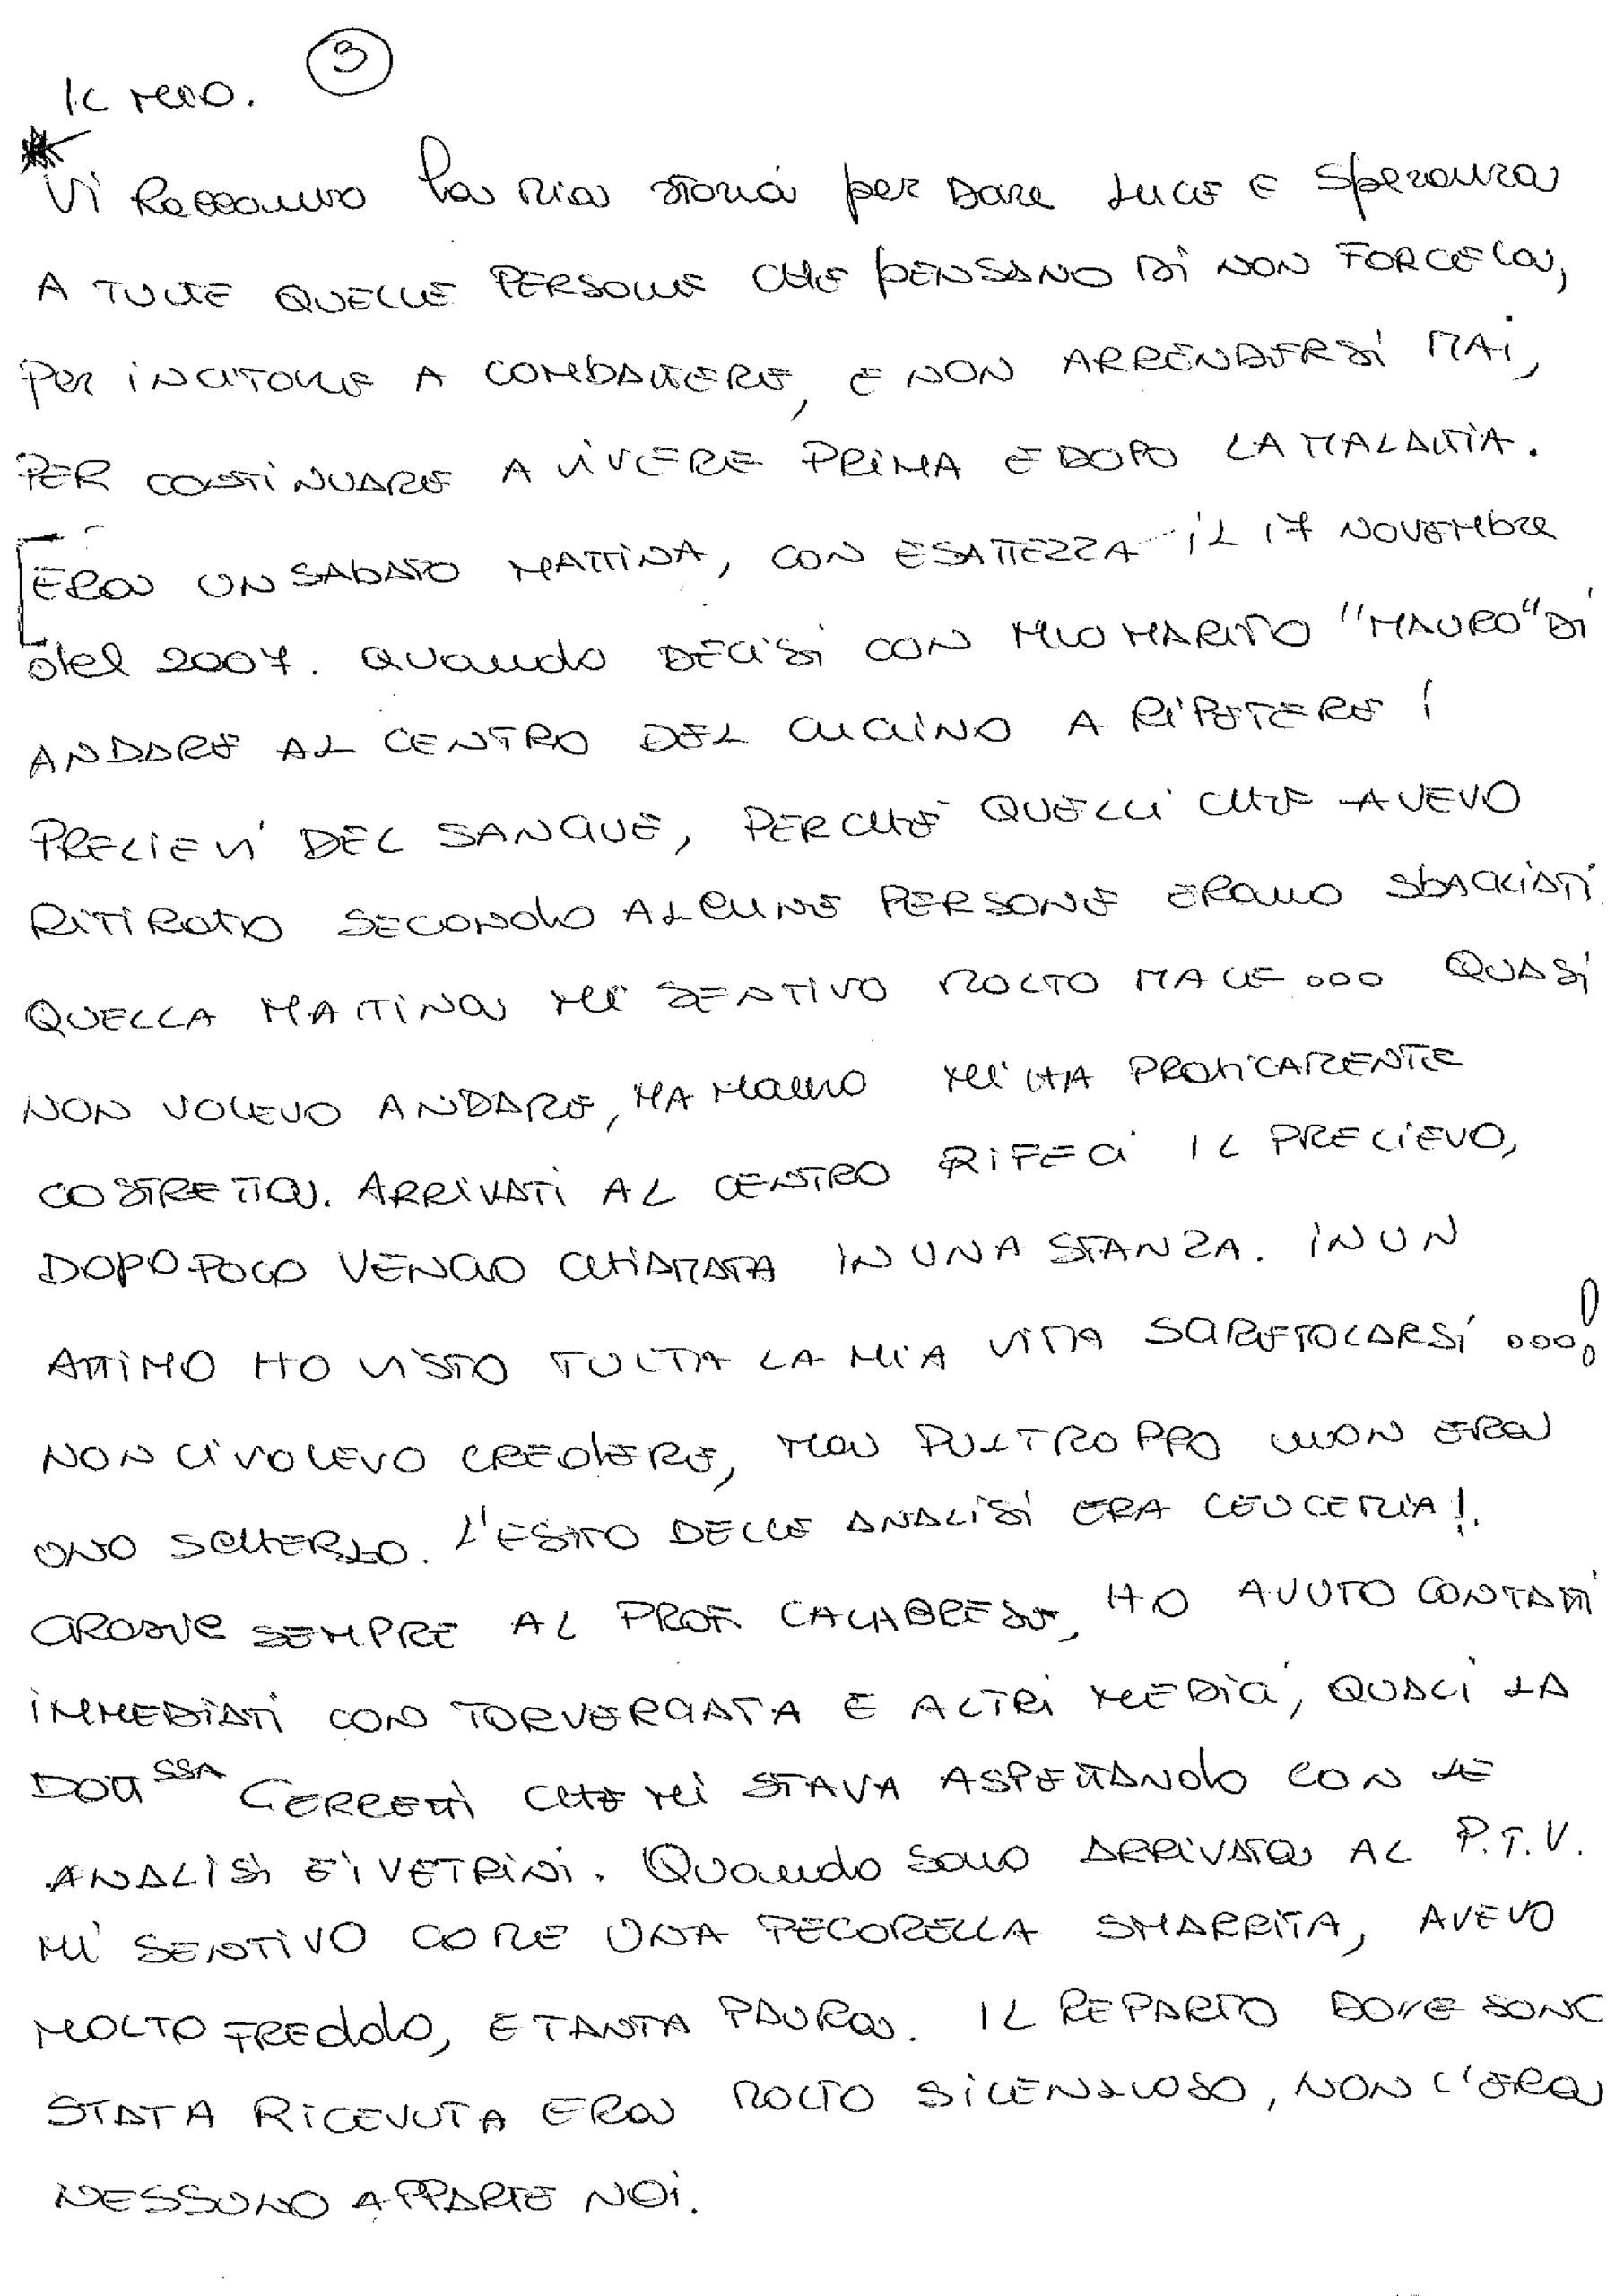 3
Il
Vi Racconto la mia storia per dare luce e speranza
A TUTTE QUELLE PERSONE CHE PENSANO DI NON FARCELA,
PER INCITARLE A COMBATTERE, E NON ARRENDERSI MAI,
PER CONTINUARE A VIVERE PRIMA E DOPO LA MALATTIA.
ERA UN SABATO MATTINA, CON ESATTEZZA IL 17 NOVEMBRE
del 2007. QUANDO DECISI CON MIO MARITO "MAURO" DI
ANDARE AL CENTRO DEL CUCINO A RIPETERE I
PRELIEVI DEL SANGUE, PERCHÉ QUELLI CHE AVEVO
RITIRATO SECONDO ALCUNE PERSONE ERANO SBAGLIATI
QUELLA MATTINA MI SENTIVO MOLTO MALE... QUASI
NON VOLEVO ANDARE, MA MAURO MI HA PRATICAMENTE
COSTRETTA. ARRIVATI AL CENTRO RIFECI IL PRELIEVO,
DOPO POCO VENGO CHIAMATA IN UNA STANZA. IN UN
ATTIMO HO VISTO TUTTA LA MIA VITA SGRETOLARSI ....!
NON CI VOLEVO CREDERE, MA PULTROPPO NON ERA
UNO SCHERZO. L'ESITO DELLE ANALISI ERA LEUCEMIA!.
GRAZIE SEMPRE AL PROF. CALABRESE, HO AVUTO CONTATTI
IMMEDIATI CON TORVERGATA E ALTRI MEDICI, QUALI LA
DOTT SSA CERRETTI CHE MI STAVA ASPETTANDO CON LE
ANALISI E I VETRINI. QUANDO SONO ARRIVATA AL P.T.V.
MI SENTIVO COME UNA PECORELLA SMARRITA, AVEVO
MOLTO FREDDO, E TANTA PAURA. IL REPARTO DOVE SONO
STATA RICEVUTA ERA MOLTO SILENZIOSO, NON C'ERA
NESSUNO APPARTE NOI.